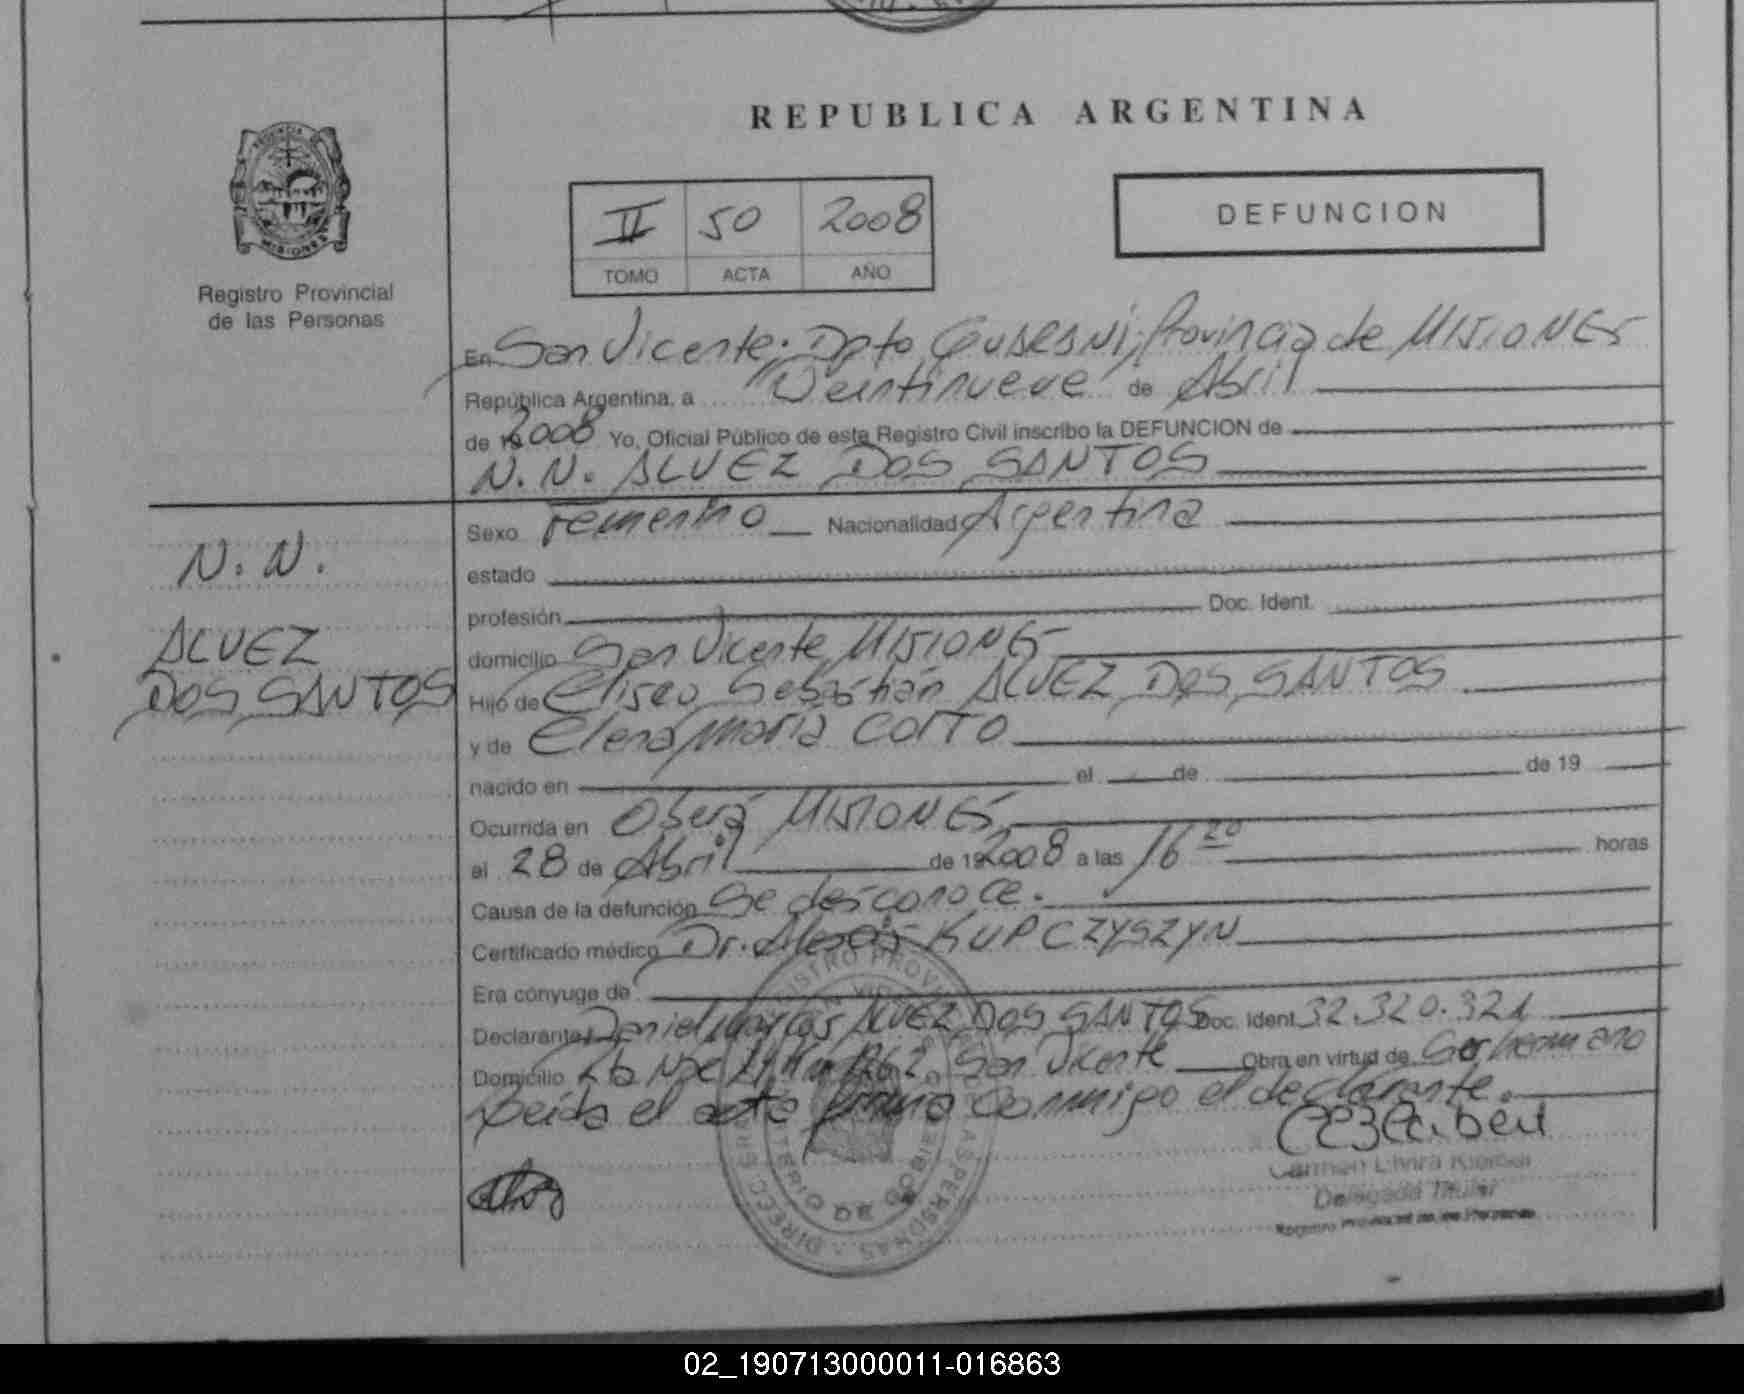 REPUBLICA ARGENTINA
II 50 2008
TOMO ACTA AÑO
DEFUNCION
MISIONES
Registro Provincial
de las Personas
En San Vicente. Dpto GUARANI, Provincia de MISIONES
República Argentina, a Veintinueve de Abril
de 2008 Yo, Oficial Público de este Registro Civil inscribo la DEFUNCION de
N.N. ALVEZ DOS SANTOS
N.N.
ALVEZ
DOS SANTOS
Sexo Femenino Nacionalidad Argentina
estado
profesión Doc. Ident.
domicilio San Vicente MISIONES
Hijo de Eliseo Sebastián ALVEZ DOS SANTOS
y de Elena María
nacido en el de de 19
Ocurrida en Oberá MISIONES
el 28 de Abril de 192008 a las 16 20 horas
Causa de la defunción Se desconoce.
Certificado médico Dr. Alexis KUPCZYSZYN
Era cónyuge de
Declarante Daniel Marcos ALVEZ DOS SANTOS Doc. Ident 32.320.321
Domicilio San Vicente Obra en virtud de Ser hermano
Leída el acta firma conmigo el declarante.
Delegada Titular
Registro Provincial de las Personas
02_190713000011-016863